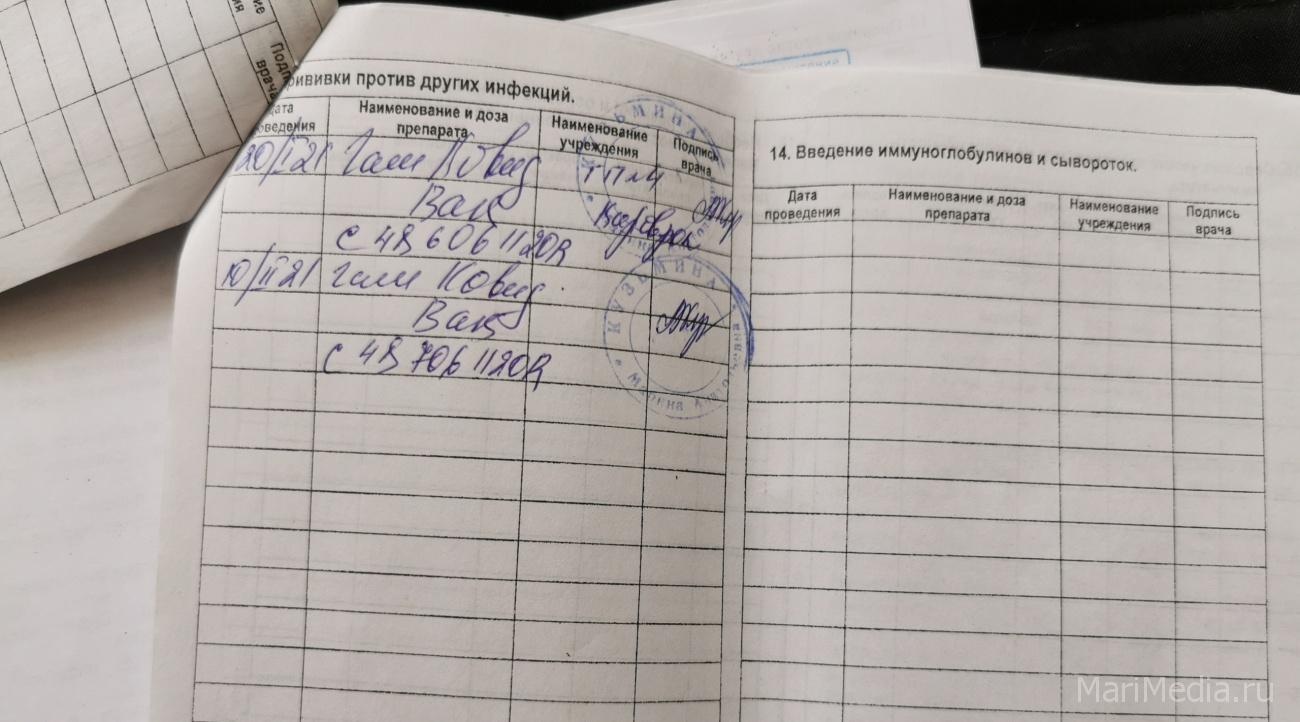 Подпись
врача
рививки против других инфекций.
Дата
проведения
Наименование и доза
препарата
Наименование
учреждения
Подпись
врача
20/I 21 Гам Ковид
Вак
С 4В 606 1120В
10/II 21 Гам Ковид
Вак
С 4В 706 1120В
КУЗЬМИНА
КУЗЬМИНА
14. Введение иммуноглобулинов и сывороток.
Дата
проведения
Наименование и доза
препарата
Наименование
учреждения
Подпись
врача
MariMedia.ru